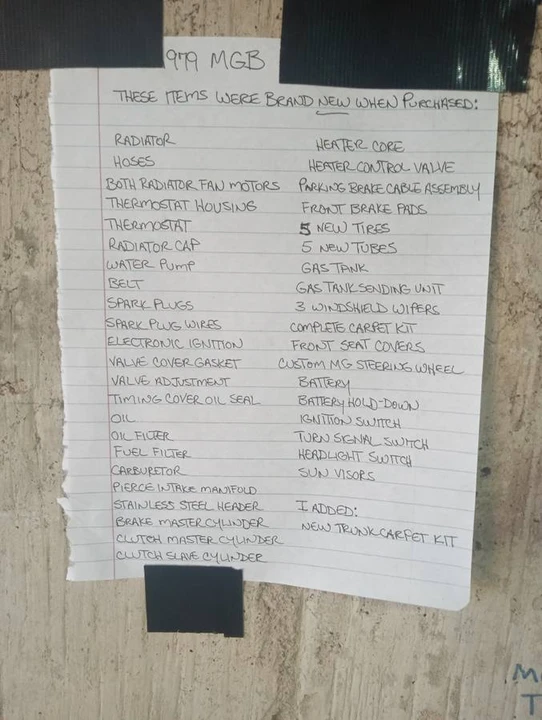 979 MGB
THESE ITEMS WERE BRAND NEW WHEN PURCHASED:
RADIATOR
HOSES
BOTH RADIATOR FAN MOTORS
THERMOSTAT HOUSING
THERMOSTAT
RADIATOR CAP
WATER PUMP
BELT
SPARK PLUGS
SPARK PLUG WIRES
ELECTRONIC IGNITION
VALVE COVER GASKET
VALVE ADJUSTMENT
TIMING COVER OIL SEAL
OIL
OIL FILTER
FUEL FILTER
CARBURETOR
PIERCE INTAKE MANIFOLD
STAINLESS STEEL HEADER
BRAKE MASTER CYLINDER
CLUTCH MASTER CYLINDER
CLUTCH SLAVE CYLINDER
HEATER CORE
HEATER CONTROL VALVE
PARKING BRAKE CABLE ASSEMBLY
FRONT BRAKE PADS
5 NEW TIRES
5 NEW TUBES
GAS TANK
GAS TANK SENDING UNIT
3 WINDSHIELD WIPERS
COMPLETE CARPET KIT
FRONT SEAT COVERS
CUSTOM MG STEERING WHEEL
BATTERY
BATTERY HOLD-DOWN
IGNITION SWITCH
TURN SIGNAL SWITCH
HEADLIGHT SWITCH
SUN VISORS
I ADDED:
NEW TRUNK CARPET KIT